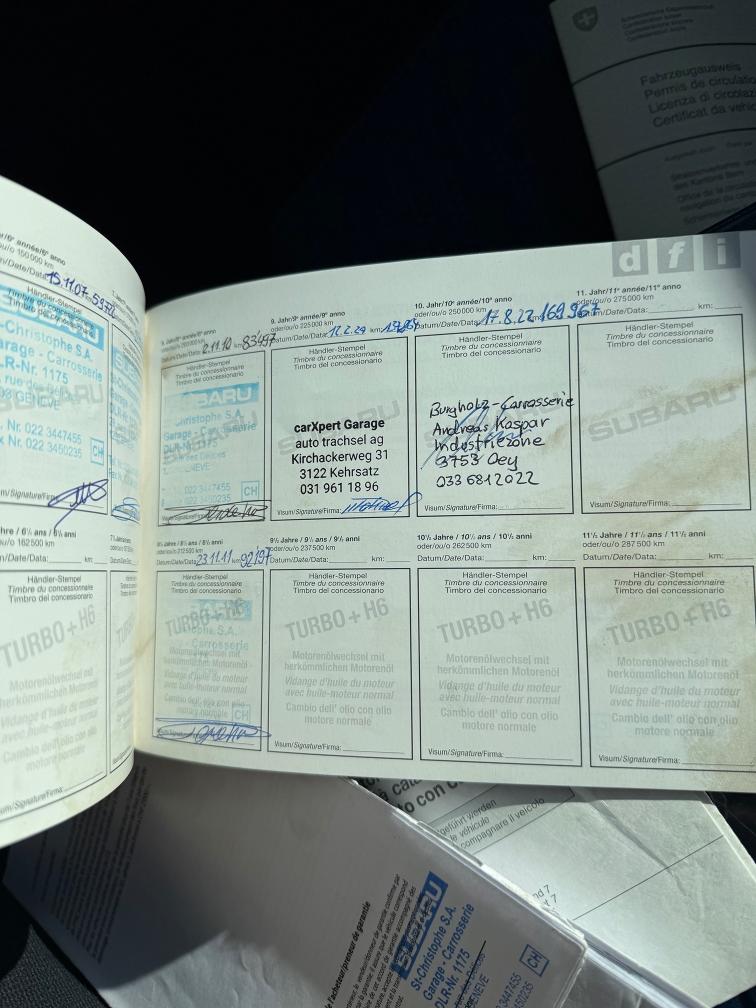 Schweizerische Eidgenossenschaft
Confédération suisse
Confederazione Svizzera
Fahrzeugausweis
Permis de circulation
Licenza di circolaz
Certificat da vehic
dfi
6ᵉ année/6° anno
ou/o 150 000 km
Datum/Date/Data: 15.11.07. 597
Händler-Stempel
Timbre du
Christophe S.A.
arage - Carrosserie
DLR-Nr. 1175
GENÈVE
Nr. 022 3447455
Nr. 022 3450235
CH
Visum/Signature/Firma:
6½ ans / 6½ anni
oder/ou/o 162 500 km
Datum/Date/Data: km:
Händler-Stempel
Timbre du concessionnaire
Timbro del concessionario
TURBO + H6
Motorenölwechsel mit
herkömmlichen Motorenöl
Vidange d'huile du moteur
avec huile-moteur normal
Cambio dell' olio con olio
motore normale
Visum/Signature/Firma:
Datum/Date/Data: 2.11.10 km: 83'497
Händler-Stempel
Timbre du concessionnaire
Timbro del concessionario
SUBARU
Christophe S.A.
Garage - Carrosserie
DLR-Nr. 1175
GENÈVE
022 3447455
022 3450235
CH
Visum/Signature/Firma:
9. Jahr/9ᵉ année/9° anno
oder/ou/o 225 000 km
Datum/Date/Data: km:
Händler-Stempel
Timbre du concessionnaire
Timbro del concessionario
carXpert Garage
auto trachsel ag
Kirchackerweg 31
3122 Kehrsatz
031 961 18 96
Visum/Signature/Firma:
10. Jahr/10ᵉ année/10° anno
oder/ou/o 250 000 km
Datum/Date/Data: 17.8.22 km: 169'967
Händler-Stempel
Timbre du concessionnaire
Timbro del concessionario
Burgholz-Carrosserie
Andreas Kaspar
Industriezone
3753 Oey
033 681 2022
Visum/Signature/Firma:
11. Jahr/11ᵉ année/11° anno
oder/ou/o 275 000 km
Datum/Date/Data: km:
Händler-Stempel
Timbre du concessionnaire
Timbro del concessionario
SUBARU
Visum/Signature/Firma:
8½ Jahre / 8½ ans / 8½ anni
oder/ou/o 212 500 km
Datum/Date/Data: 23.11.11 km: 92197
Händler-Stempel
Timbre du concessionnaire
Timbro del concessionario
TURBO + H6
Carrosserie
Motorenölwechsel mit
herkömmlichen Motorenöl
Vidange d'huile du moteur
avec huile-moteur normal
Cambio dell' olio con olio
motore normale
CH
Visum/Signature/Firma:
9½ Jahre / 9½ ans / 9½ anni
oder/ou/o 237 500 km
Datum/Date/Data: km:
Händler-Stempel
Timbre du concessionnaire
Timbro del concessionario
TURBO + H6
Motorenölwechsel mit
herkömmlichen Motorenöl
Vidange d'huile du moteur
avec huile-moteur normal
Cambio dell' olio con olio
motore normale
Visum/Signature/Firma:
10½ Jahre / 10½ ans / 10½ anni
oder/ou/o 262 500 km
Datum/Date/Data: km:
Händler-Stempel
Timbre du concessionnaire
Timbro del concessionario
TURBO + H6
Motorenölwechsel mit
herkömmlichen Motorenöl
Vidange d'huile du moteur
avec huile-moteur normal
Cambio dell' olio con olio
motore normale
Visum/Signature/Firma:
11½ Jahre / 11½ ans / 11½ anni
oder/ou/o 287 500 km
Datum/Date/Data: km:
Händler-Stempel
Timbre du concessionnaire
Timbro del concessionario
TURBO + H6
Motorenölwechsel mit
herkömmlichen Motorenöl
Vidange d'huile du moteur
avec huile-moteur normal
Cambio dell' olio con olio
motore normale
Visum/Signature/Firma:
geführt werden
le véhicule
compagnare il veicolo
l'acheteur/preneur de garantie
SUBARU
St-Christophe S.A.
Garage - Carrosserie
DLR-Nr. 1175
GENEVE
3447455
3450235
CH